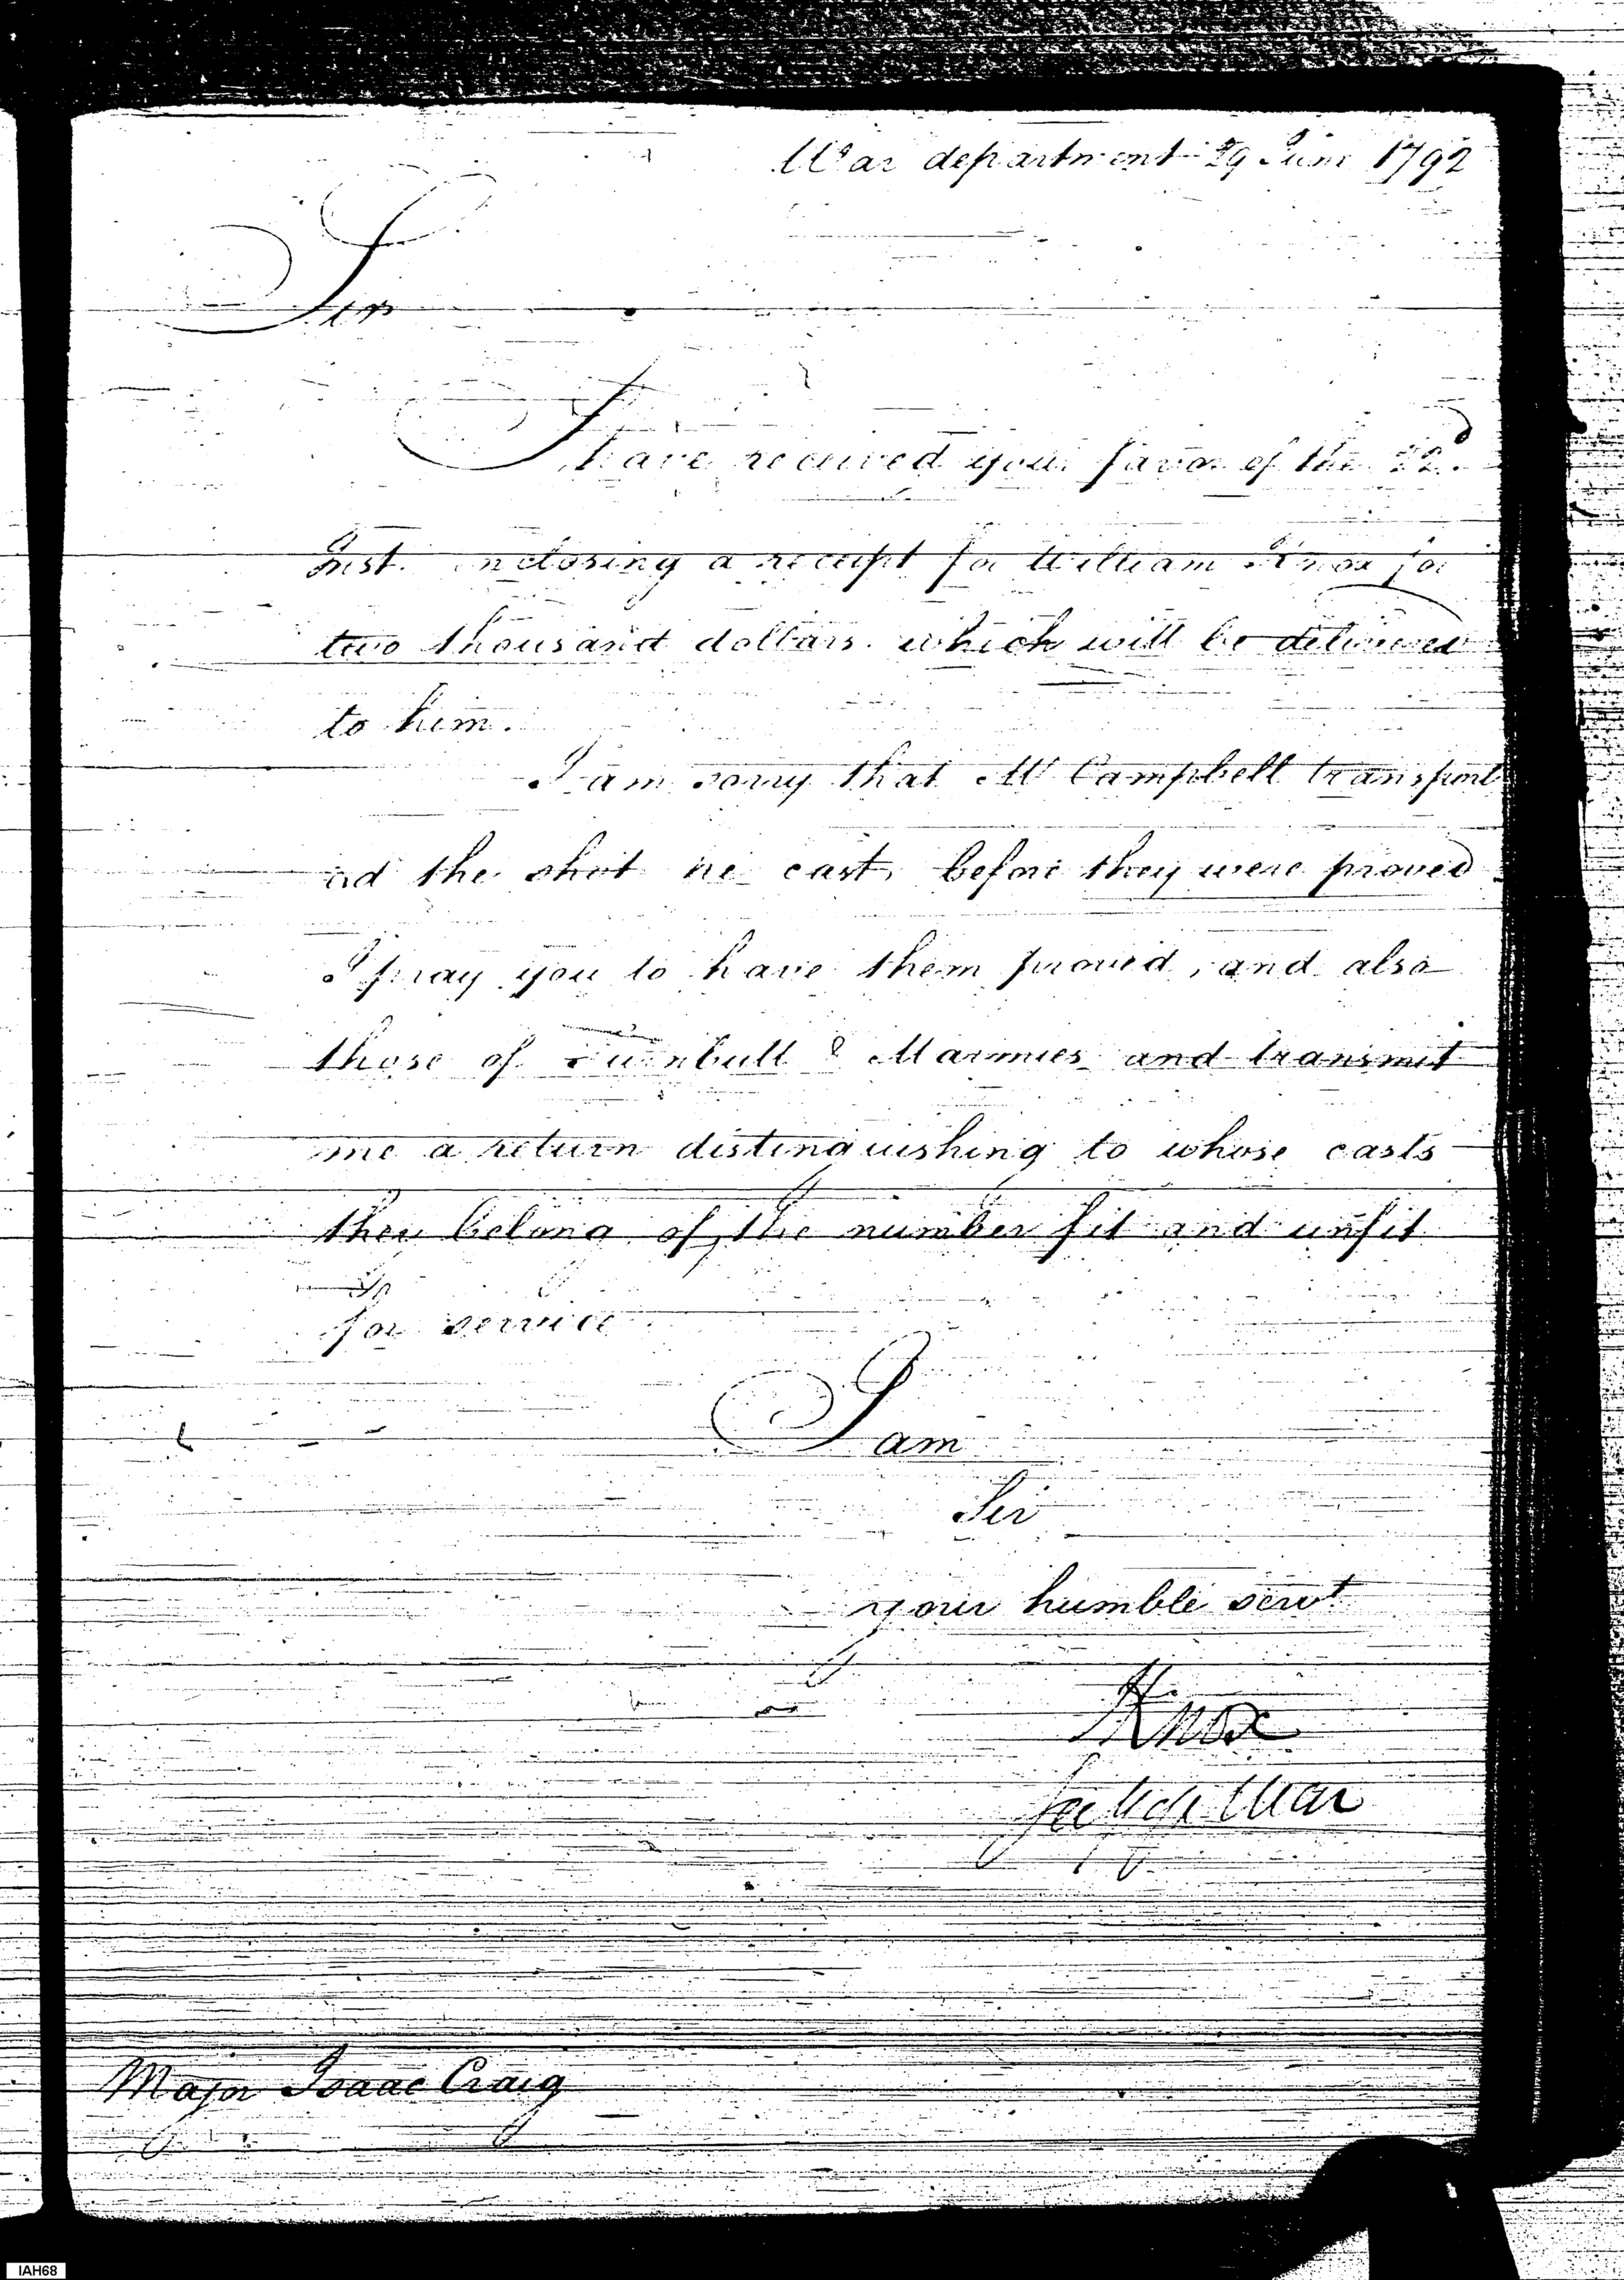 War department 29 June 1792
Sir
I have received your favor of the 22d
Inst. enclosing a receipt for William Knox for
two thousand dollars. which will be delivered
to him.
I am sorry that Mr Campbell transport
ed the shot he cast, before they were proved
I pray you to have them proved, and also
those of Turnbull & Marmies and transmit
me a return distinguishing to whose casts
they belong of the number fit and unfit
for service
I am
Sir
your humble servt
HKnox
Secy of War
Major Isaac Craig
IAH68